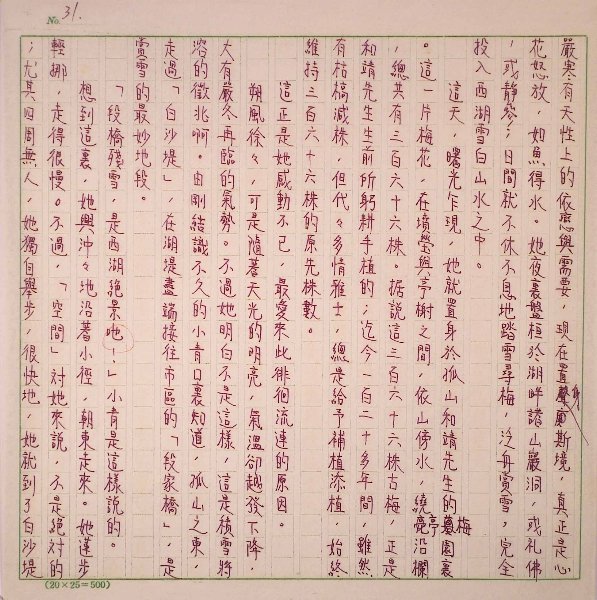 No. 31.
嚴寒有天性上的依戀與需要，現在置身斯境，真正是心
花怒放，如魚得水。她夜裏盤桓於湖畔諸山嚴洞，或礼佛
，或静參；日間就不休不息地踏雪尋梅，泛舟賞雪，完全
投入西湖雪白山水之中。
這天，曙光乍現，她就置身於孤山和靖先生的墓園裏
。這一片梅花，在墳塋與亭榭之間，依山傍水，繞亭沿欄
，總共有三百六十六株。据說這三百六十六株古梅，正是
和靖先生生前所躬耕手植的；迄今一百二十多年間，雖然
有枯槁減株，但代々多情雅士，總是給予補植添植，始終
維持三百六十六株的原先株數。
這正是她感動不已，最愛來此徘徊流連的原因。
朔風徐々，可是隨著天光的明亮，氣溫卻越發下降，
大有嚴冬再臨的氣勢。不過她明白不是這樣，這是積雪將
溶的徵兆啊。由剛結識不久的小青口裏知道，孤山之東，
走過「白沙堤」，在湖堤盡端接往市區的「段家橋」，是
賞雪的最妙地段。
「段橋殘雪，是西湖絕景吔！」小青是這樣說的。
想到這裏，她興沖々地沿著小徑，朝東走來。她蓮步
輕挪，走得很慢。不過，「空間」対她來說，不是絕対的
；尤其四周無人，她獨自舉步，很快地，她就到了白沙堤
(20×25=500)